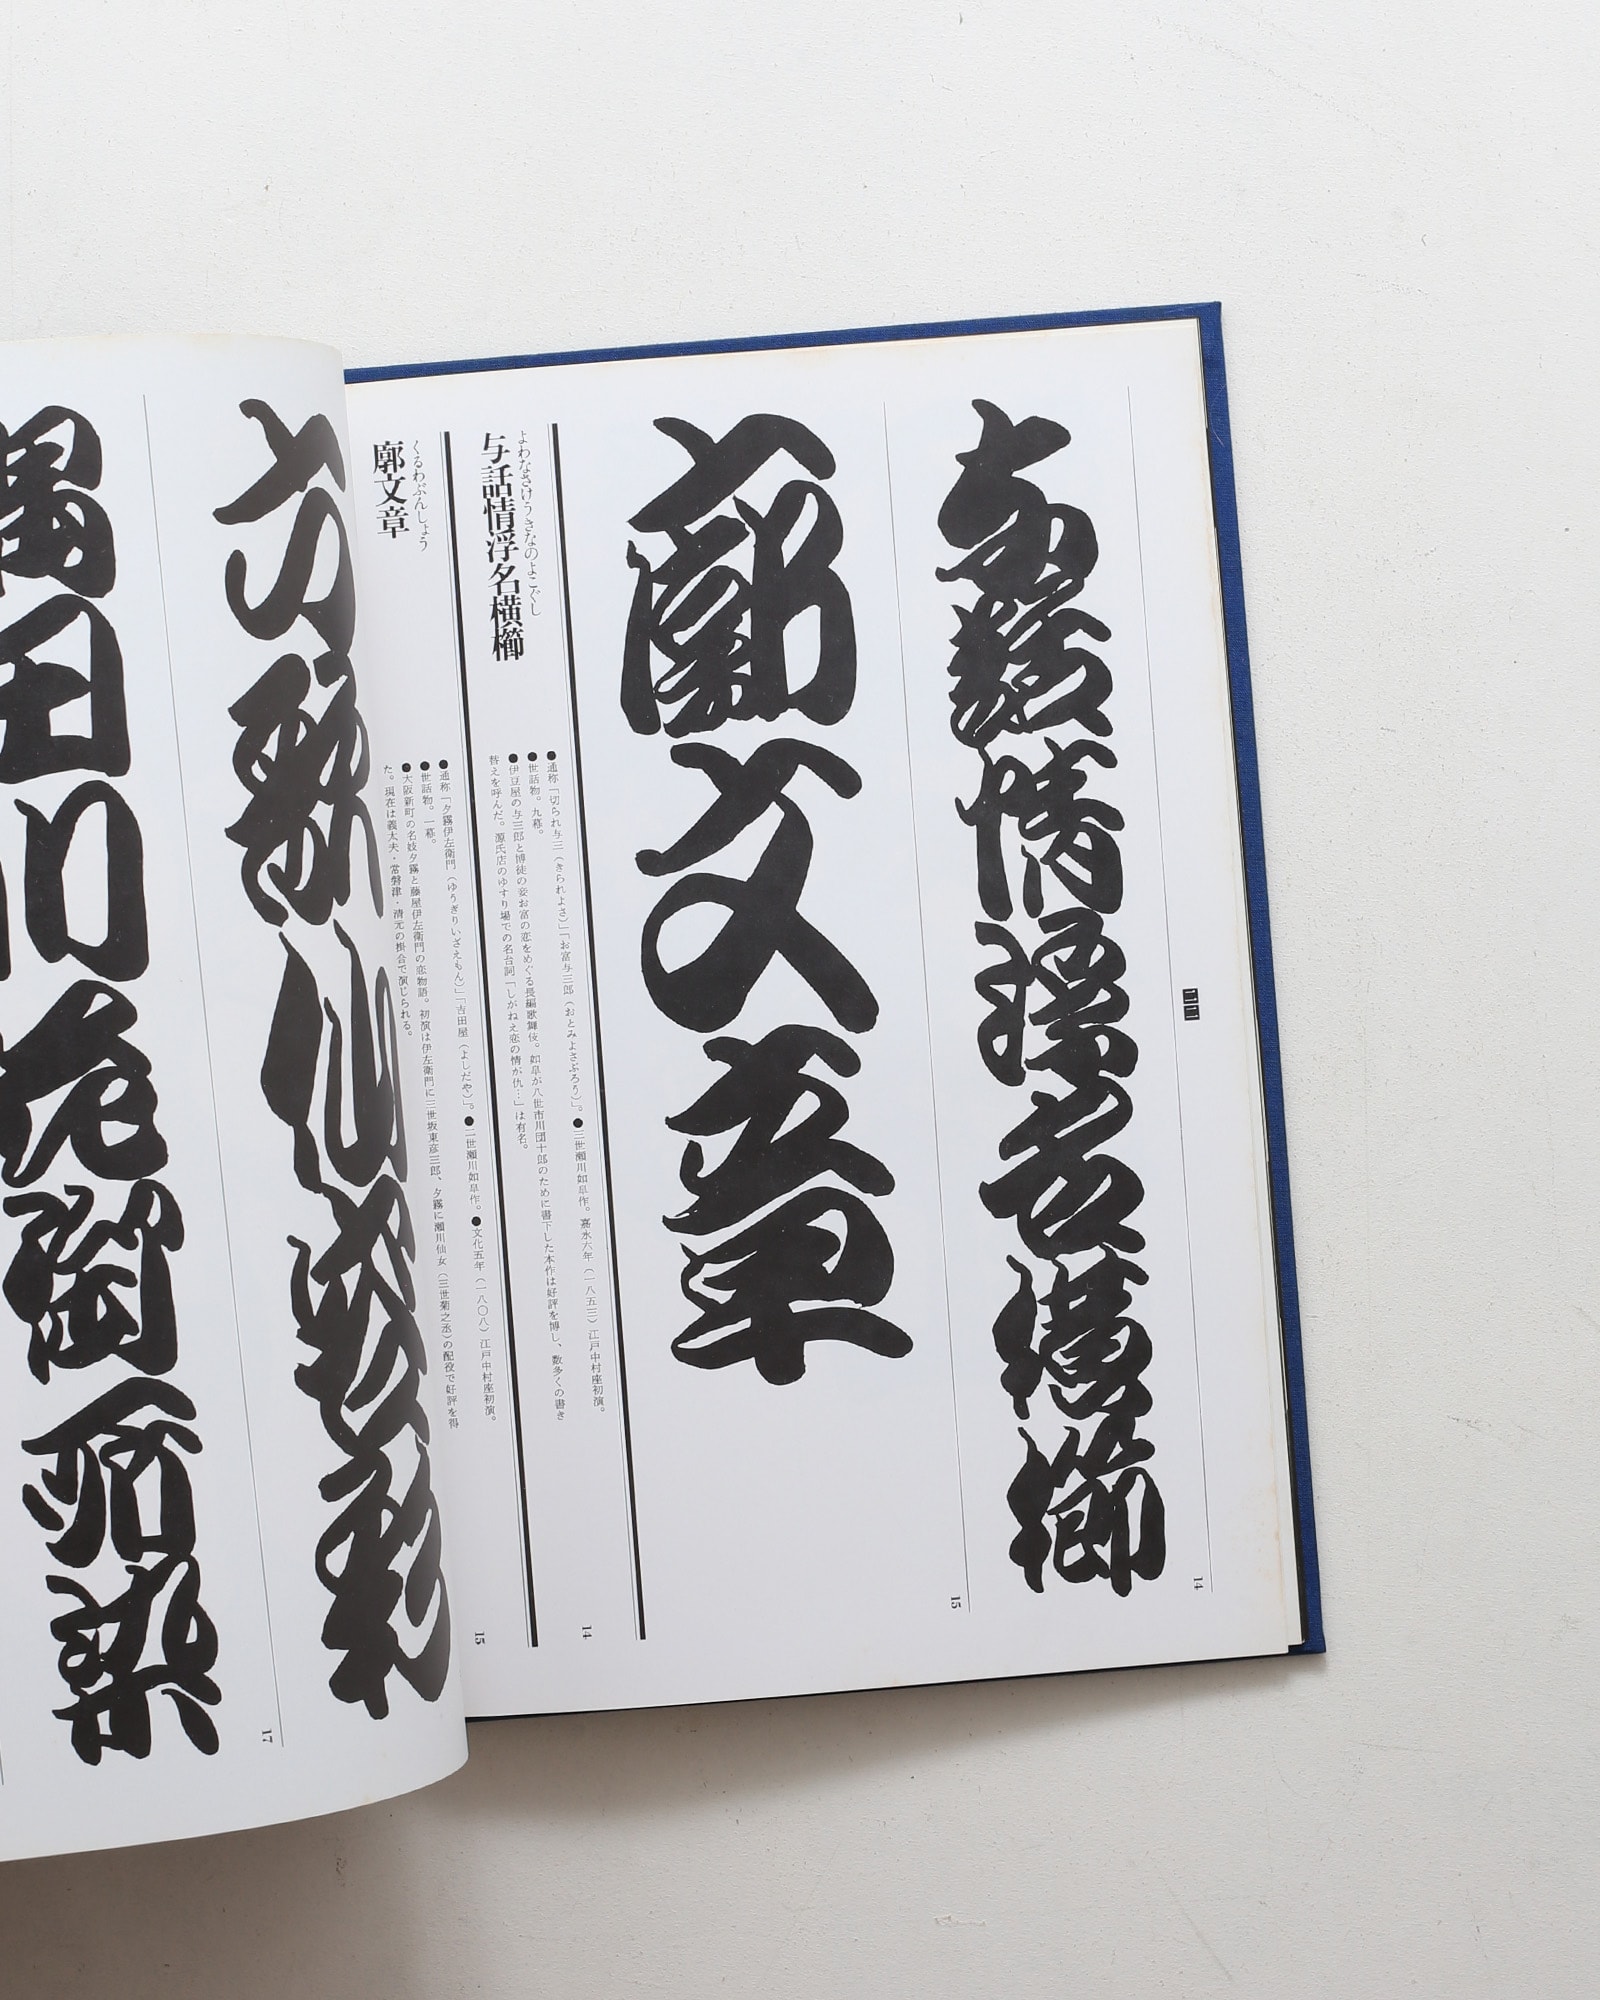 与話情浮名横櫛
14
廓文章
15
よわなさけうきなのよこぐし
与話情浮名横櫛
●通称「切られ与三(きられよさ)」「お富与三郎(おとみよさぶろう)」。●三世瀬川如皐作。嘉永六年(一八五三)江戸中村座初演。
●世話物。九幕。
●伊豆屋の与三郎と博徒の妾お富の恋をめぐる長編歌舞伎。如皐が八世市川団十郎のために書下した本作は好評を博し、数多くの書き
替えを呼んだ。源氏店のゆすり場での名台詞「しがねえ恋の情が仇…」は有名。
14
くるわぶんしょう
廓文章
●通称「夕霧伊左衛門(ゆうぎりいざえもん)」「吉田屋(よしだや)」。●二世瀬川如皐作。●文化五年(一八〇八)江戸中村座初演。
●世話物。一幕。
●大阪新町の名妓夕霧と藤屋伊左衛門の恋物語。初演は伊左衛門に三世坂東彦三郎、夕霧に瀬川仙女(三世菊之丞)の配役で好評を得
た。現在は義太夫・常磐津・清元の掛合で演じられる。
15
六歌仙容彩
17
隅田川花御所染